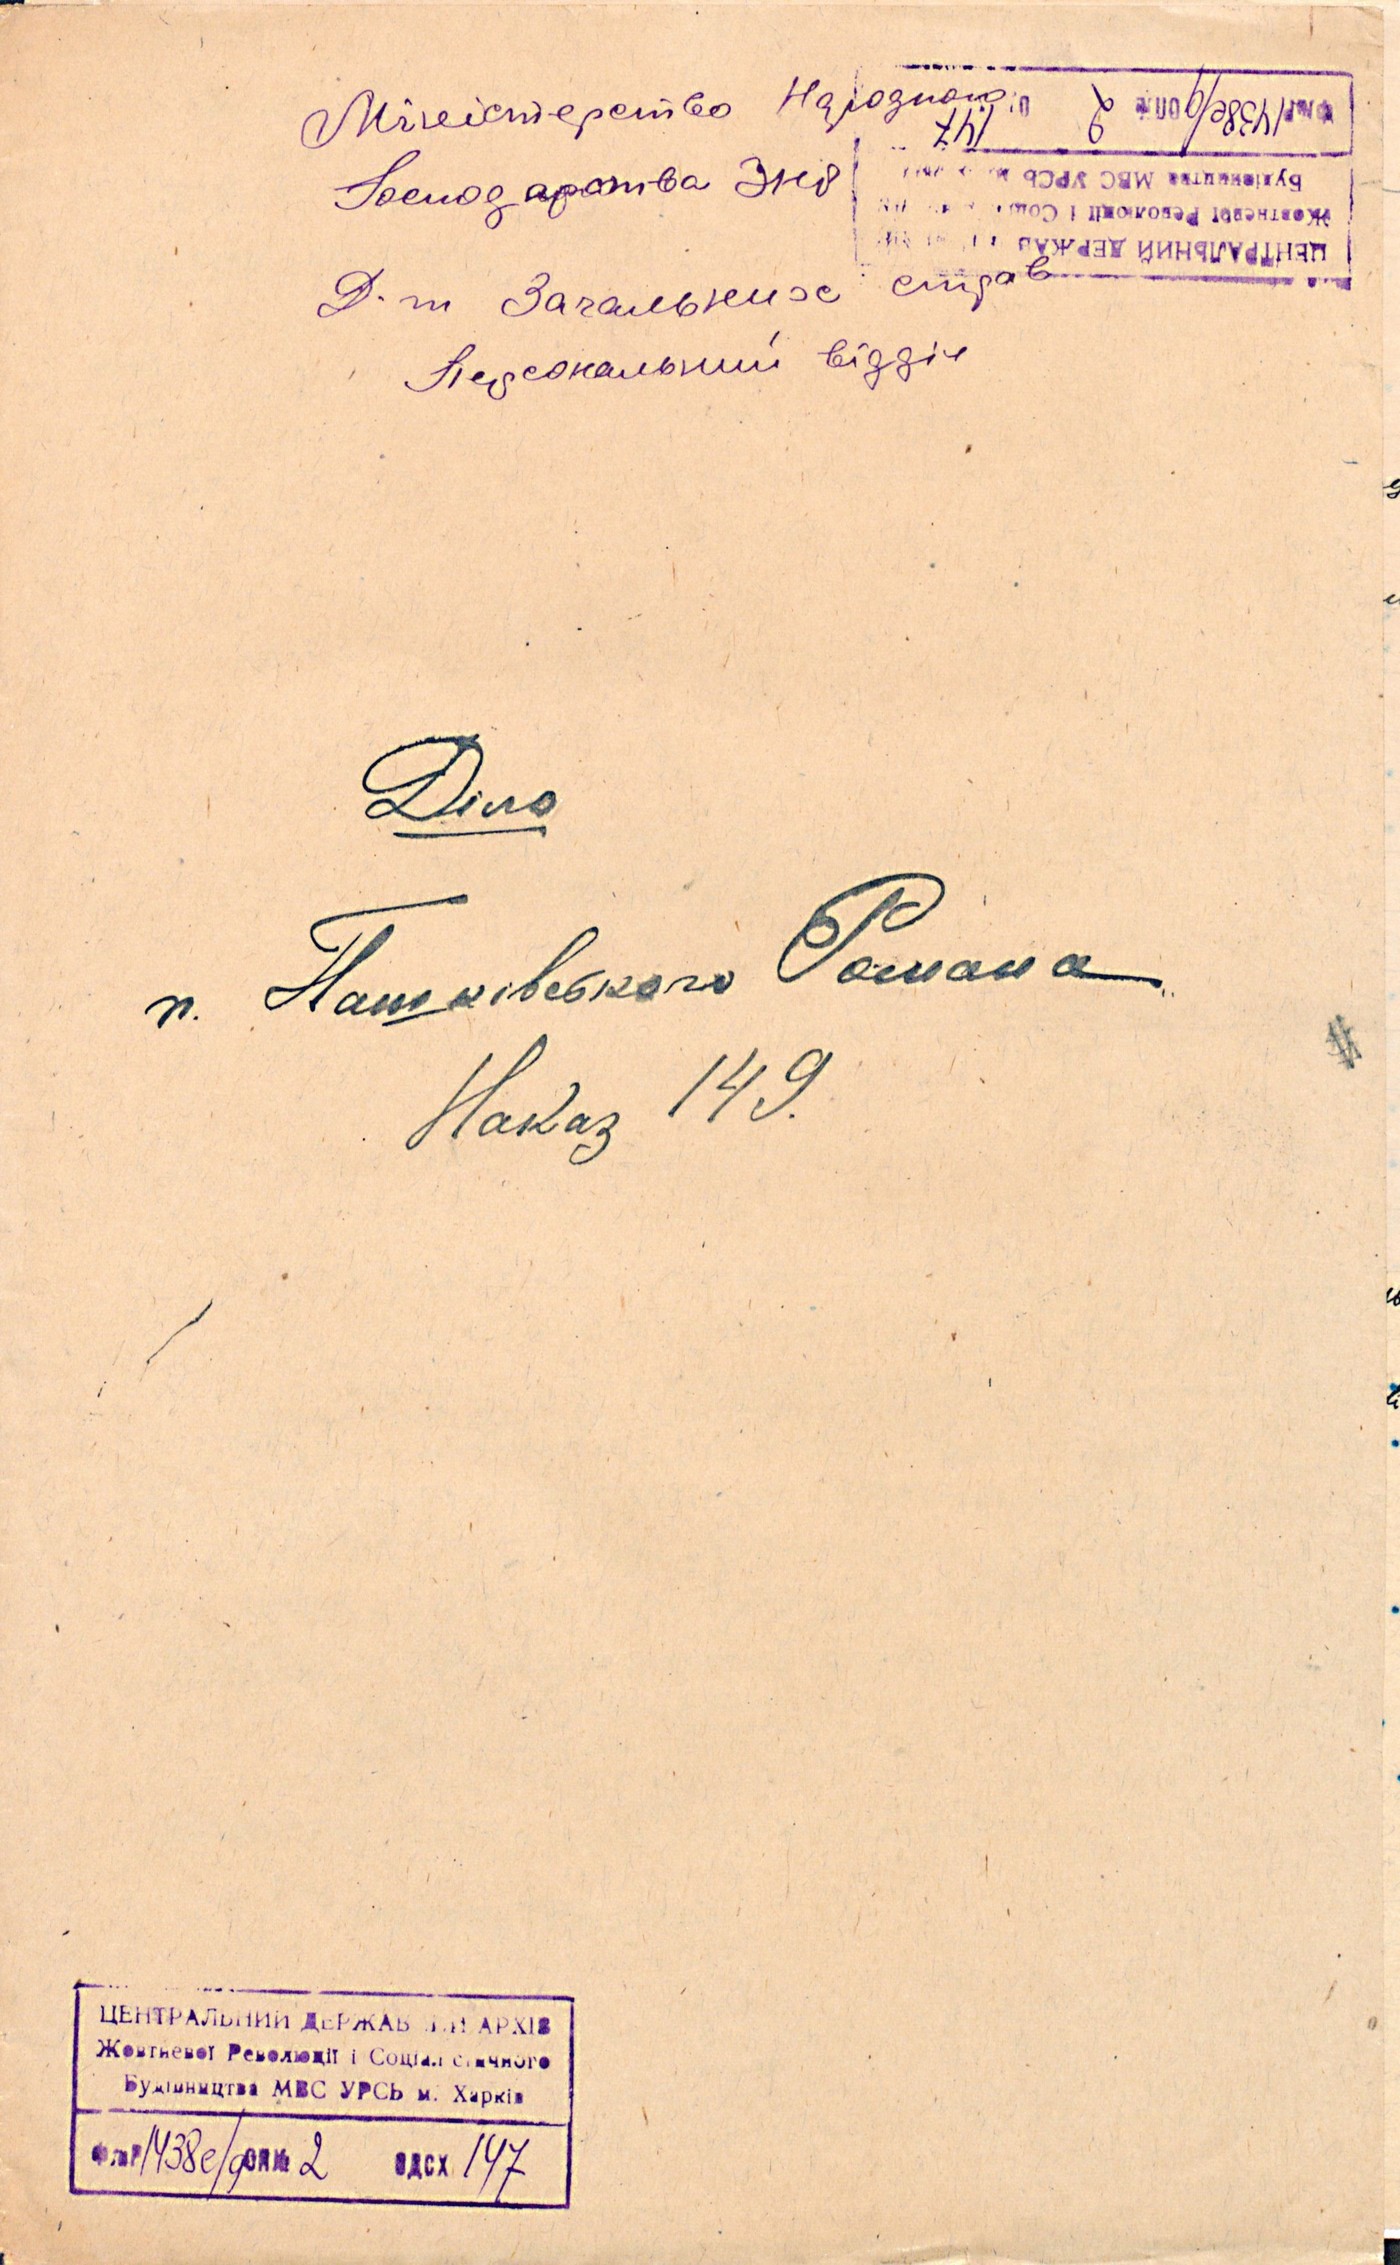 Міністерство Народного
Господарства ЗНР
Д-т Загальних справ
Персональний відділ
ЦЕНТРАЛЬНИЙ ДЕРЖАВ
Жовтневої Революції і Соц
Будівництва МВС УРСР м.
ф. № Р 1438 е/д ОП № 2
147
Діло
п. Пашківського Романа
Наказ 149.
ЦЕНТРАЛЬНИЙ ДЕРЖАВНИЙ АРХІВ
Жовтневої Революції і Соціалістичного
Будівництва МВС УРСР м. Харків
ф. № Р 1438 е/д ОП № 2 ОДСХ 147